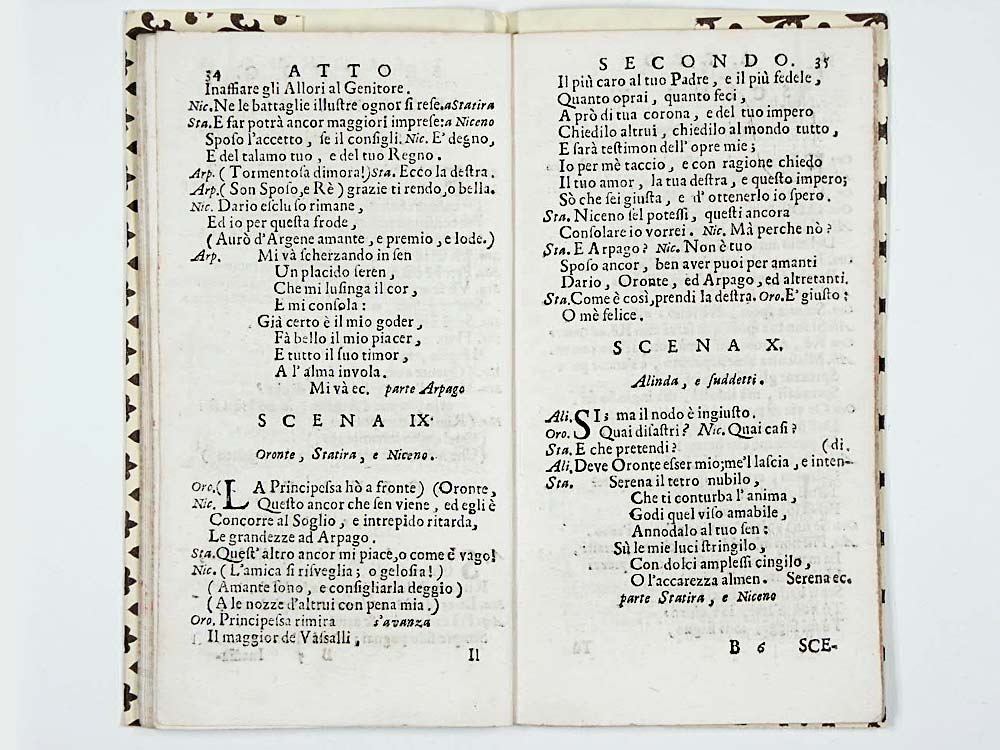 34 ATTO
Inaffiare gli Allori al Genitore.
Nic. Ne le battaglie illustre ognor si rese. a Statira
Sta. E far potrà ancor maggiori imprese: a Niceno
Sposo l'accetto, se il consigli. Nic. E' degno,
E del talamo tuo, e del tuo Regno.
Arp. (Tormentosa dimora!) Sta. Ecco la destra.
Arp. (Son Sposo, e Rè) grazie ti rendo, o bella.
Nic. Dario escluso rimane,
Ed io per questa frode,
(Aurò d'Argene amante, e premio, e lode.)
Arp. Mi và scherzando in sen
Un placido seren,
Che mi lusinga il cor,
E mi consola:
Già certo è il mio goder,
Fà bello il mio piacer,
E tutto il suo timor,
A l'alma invola.
Mi và ec. parte Arpago
SCENA IX.
Oronte, Statira, e Niceno.
Oro. (LA Principessa hò a fronte) (Oronte,
Nic. Questo ancor che sen viene, ed egli è
Concorre al Soglio, e intrepido ritarda,
Le grandezze ad Arpago.
Sta. Quest' altro ancor mi piace, o come è vago!
Nic. (L'amica si risveglia; o gelosia!)
(Amante sono, e consigliarla deggio)
(A le nozze d'altrui con pena mia.)
Oro. Principessa rimira s'avanza
Il maggior de Vassalli,
Il
SECONDO. 35
Il più caro al tuo Padre, e il più fedele,
Quanto oprai, quanto feci,
A prò di tua corona, e del tuo impero
Chiedilo altrui, chiedilo al mondo tutto,
E sarà testimon dell' opre mie;
Io per mè taccio, e con ragione chiedo
Il tuo amor, la tua destra, e questo impero;
Sò che sei giusta, e d' ottenerlo io spero.
Sta. Niceno sel potessi, questi ancora
Consolare io vorrei. Nic. Mà perche nò?
Sta. E Arpago? Nic. Non è tuo
Sposo ancor, ben aver puoi per amanti
Dario, Oronte, ed Arpago, ed altretanti.
Sta. Come è così, prendi la destra. Oro. E' giusto:
O mè felice.
SCENA X.
Alinda, e suddetti.
Ali. SI; ma il nodo è ingiusto.
Oro. Quai disastri? Nic. Quai casi?
Sta. E che pretendi? (di.
Ali. Deve Oronte esser mio; me'l lascia, e inten-
Sta. Serena il tetro nubilo,
Che ti conturba l' anima,
Godi quel viso amabile,
Annodalo al tuo sen:
Sù le mie luci stringilo,
Con dolci amplessi cingilo,
O l'accarezza almen. Serena ec.
parte Statira, e Niceno
B 6 SCE-